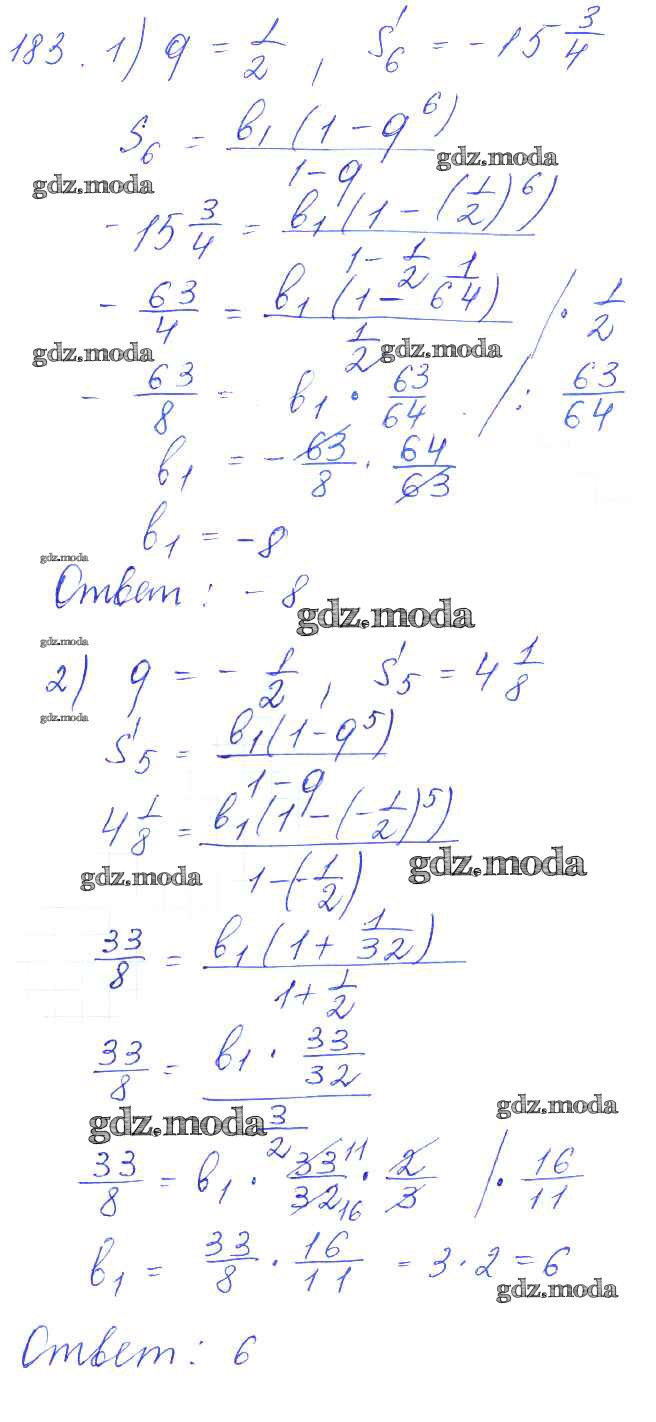 183. 1) q = 1/2, S₆ = -15 3/4
S₆ = b₁(1 - q⁶)/1 - q
gdz.moda
gdz.moda
-15 3/4 = b₁(1 - (1/2)⁶)/1 - 1/2
-63/4 = b₁(1 - 1/64)/1/2 /· 1/2
gdz.moda
gdz.moda
-63/8 = b₁ · 63/64 /: 63/64
b₁ = -63/8 · 64/63
b₁ = -8
gdz.moda
Ответ: -8
gdz.moda
gdz.moda
2) q = -1/2, S₅ = 4 1/8
gdz.moda
S₅ = b₁(1 - q⁵)/1 - q
4 1/8 = b₁(1 - (-1/2)⁵)/1 - (-1/2)
gdz.moda
gdz.moda
33/8 = b₁(1 + 1/32)/1 + 1/2
33/8 = b₁ · 33/32/3/2
gdz.moda
gdz.moda
33/8 = b₁ · 33 11/32 16 · 2/3 /· 16/11
b₁ = 33/8 · 16/11 = 3 · 2 = 6
gdz.moda
Ответ: 6